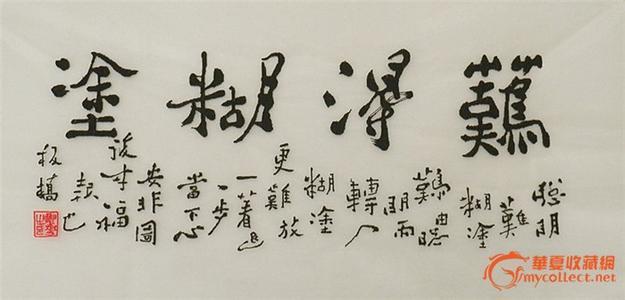 難得糊塗
聰明
難糊塗
難由聰
明而
轉入
糊塗
更難放
一着退
一步
當下心
安非圖
後来福
報也
板橋
華夏收藏網
mycollect.com